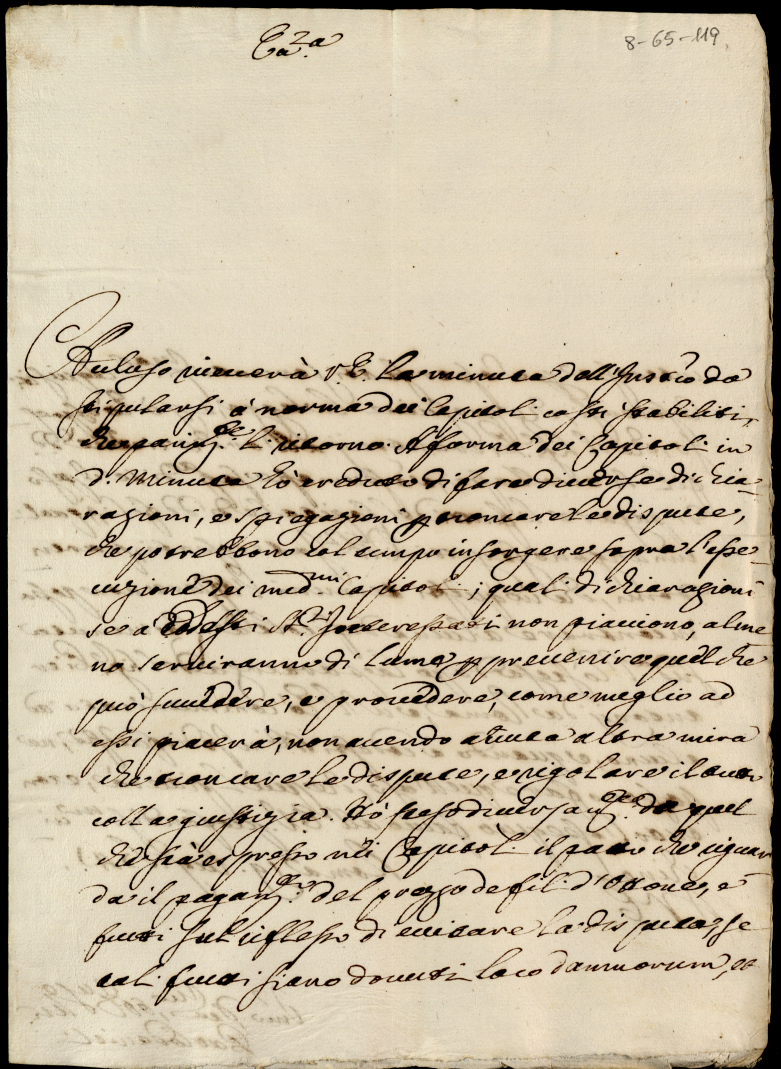 Ecc.za
8-65-119
Acluso riceverà V.E. la minuta dell'Instro da
stipularsi à norma dei Capitoli costì stabiliti,
L ritorno. A forma dei Capitoli in
d.a Minuta hò creduto di fare diverse dichia-
razioni, e spiegazioni p troncare le dispute,
che potrebbono col tempo insorgere sopra l'ese-
cuzione dei med.mi Capitoli; quali dichiarazioni
se a codesti SS.ri Interessati non piacciono, alme
no serviranno di lume p prevenire quel che
può succedere, e provedere, come meglio ad
essi piacerà, non avendo avuta altra mira
che troncare le dispute, e regolare il tutto
colla giustizia. Hò steso diversam.te da quel
che stà espresso nei Capitoli il patto che riguar
da il pagam.to del prezzo de fili d'Ottone, e
frutti sul riflesso di evitare la disputa, se
tali frutti siano dovuti loco damnorum, et